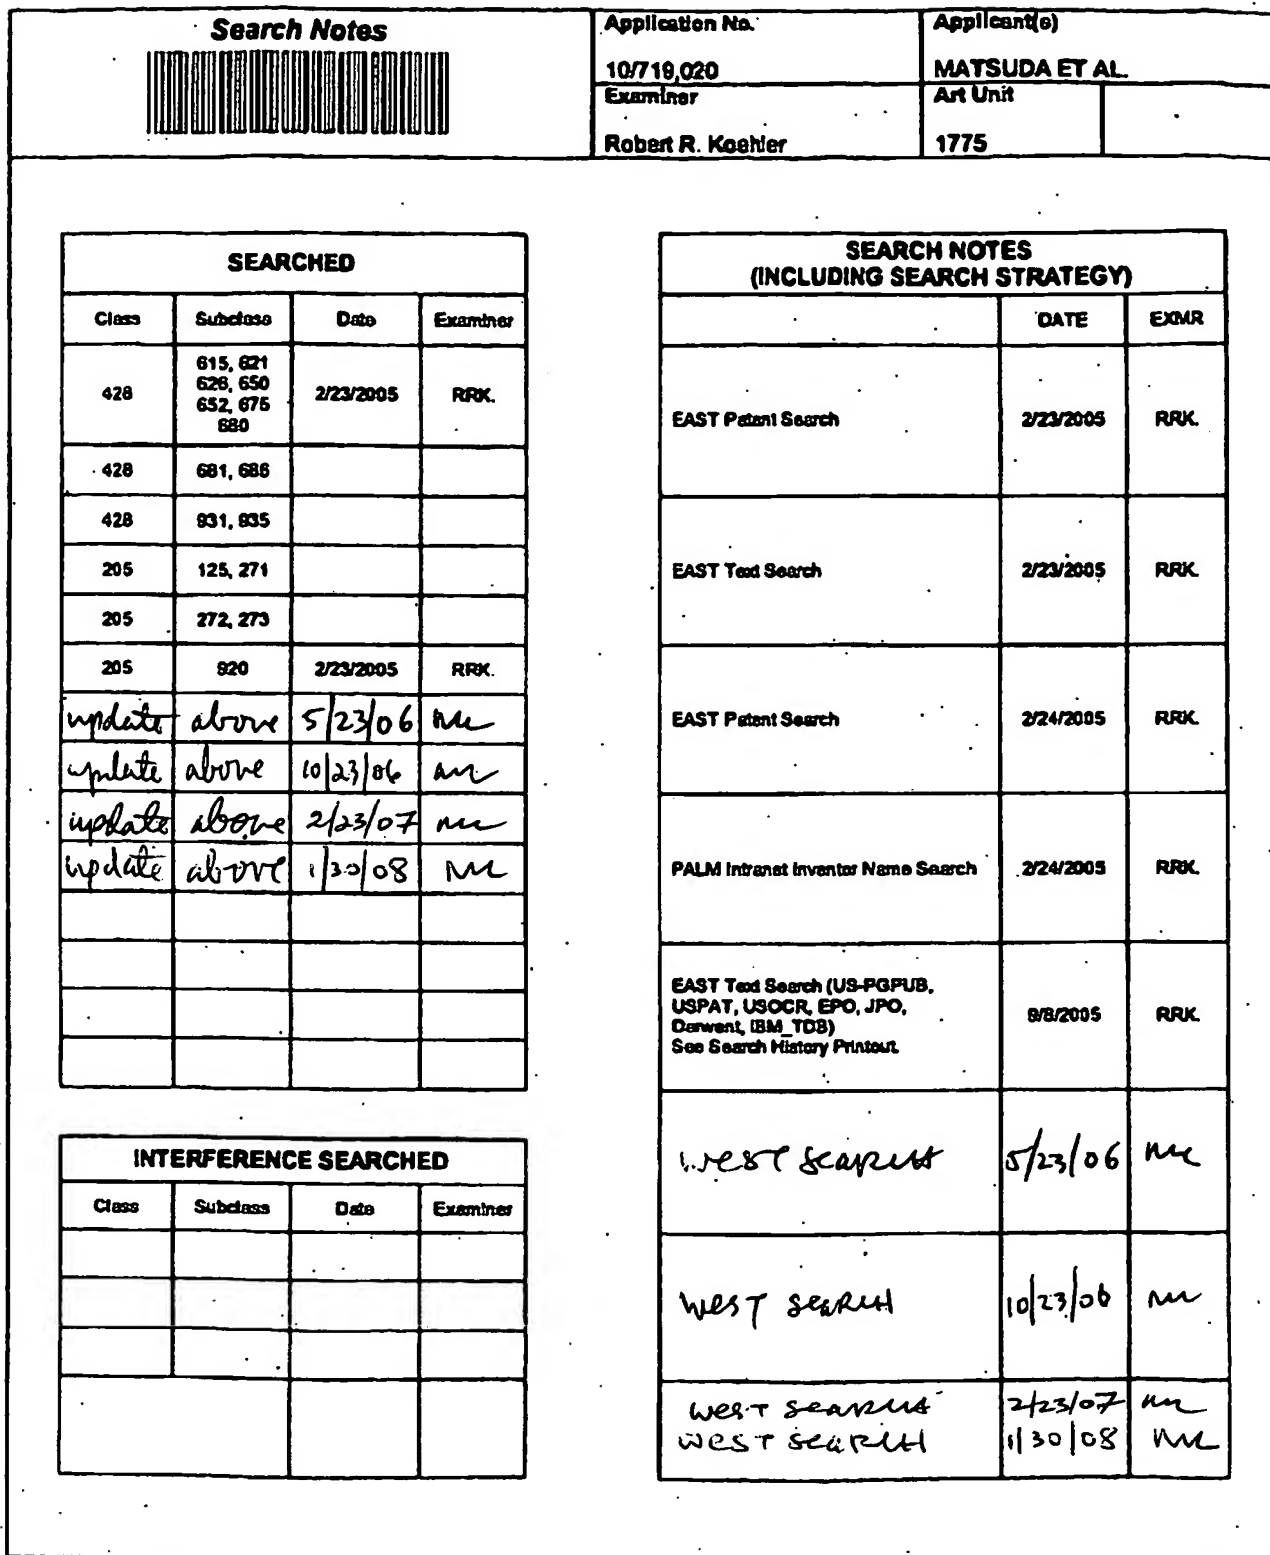 Search Notes
Application No.
Applicant(s)
10/719,020
MATSUDA ET AL.
Examiner
Art Unit
Robert R. Koehler
1775
SEARCHED
Class Subclass Date Examiner
428 615, 621 626, 650 652, 675 680 2/23/2005 RRK.
428 681, 686
428 931, 935
205 125, 271
205 272, 273
205 920 2/23/2005 RRK.
update above 5/23/06
update above 10/23/06
update above 2/23/07
update above 1/30/08
INTERFERENCE SEARCHED
Class Subclass Date Examiner
SEARCH NOTES
(INCLUDING SEARCH STRATEGY)
DATE EXMR
EAST Patent Search 2/23/2005 RRK.
EAST Text Search 2/23/2005 RRK.
EAST Patent Search 2/24/2005 RRK.
PALM Intranet Inventor Name Search 2/24/2005 RRK.
EAST Text Search (US-PGPUB,
USPAT, USOCR, EPO, JPO,
Derwent, IBM_TDB) 9/8/2005 RRK.
See Search History Printout.
West Search 5/23/06
West Search 10/23/06
West Search 2/23/07
West Search 1/30/08